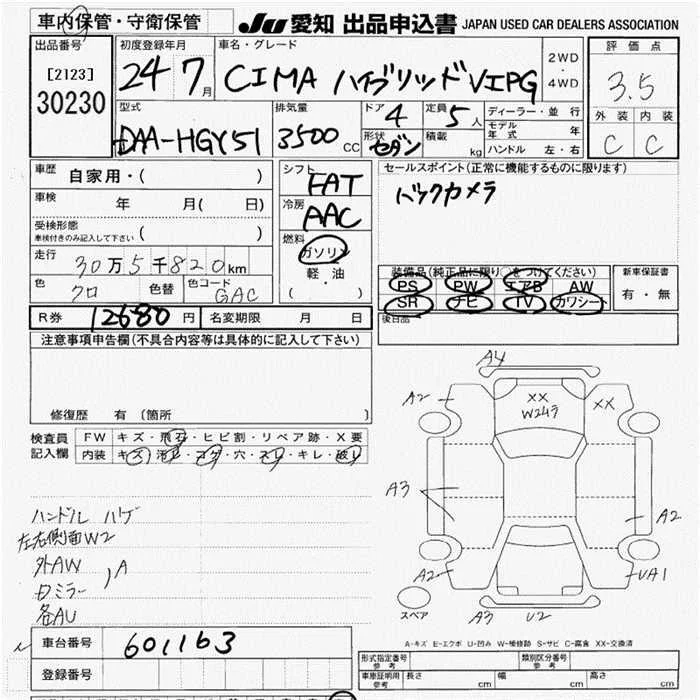 車内保管・守衛保管 JU 愛知 出品申込書 JAPAN USED CAR DEALERS ASSOCIATION
出品番号 初度登録年月 車名・グレード 2WD・4WD 評価点
[2123]
30230
24 7月 CIMA ハイブリッドVIPG 3.5
型式 排気量 ドア 4 定員 5人 ディーラー・並行 外装 内装
DAA-HGY51 3500CC 形状 セダン 積載 kg モデル年式 年 C C
ハンドル 左・右
車歴 自家用・( ) シフト FAT セールスポイント(正常に機能するものに限ります)
車検 年 月( 日) 冷房 AAC バックカメラ
受検形態
車検付きのみ記入して下さい ( ) 燃料 ガソリン
走行 30万5千820km 軽油 装備品(純正品に限り○をつけてください) 新車保証書
色 クロ 色替 色コード GAC ( ・ ) PS PW エアB AW 有・無
SR ナビ TV カワシート
R券 12680円 名変期限 月 日 後日品
注意事項申告欄(不具合内容等は具体的に記入して下さい)
修復歴 有 (箇所 )
検査員記入欄 FW キズ・飛石・ヒビ割・リペア跡・X要
内装 キズ・汚レ・コゲ・穴・スレ・キレ・破レ
ハンドル ハゲ
左右側面W2
外AW
ロミラー , A
各AU
A4
A2 XX XX
A3 A2
A2 UA1
スペア A3 U2
A-キズ E-エクボ U-凹み W-補修跡 S-サビ C-腐食 XX-交換済
車台番号 601163
登録番号
形式指定番号 参考 類別区分番号 参考
車庫証明用 参考 長さ cm 幅 cm 高さ cm